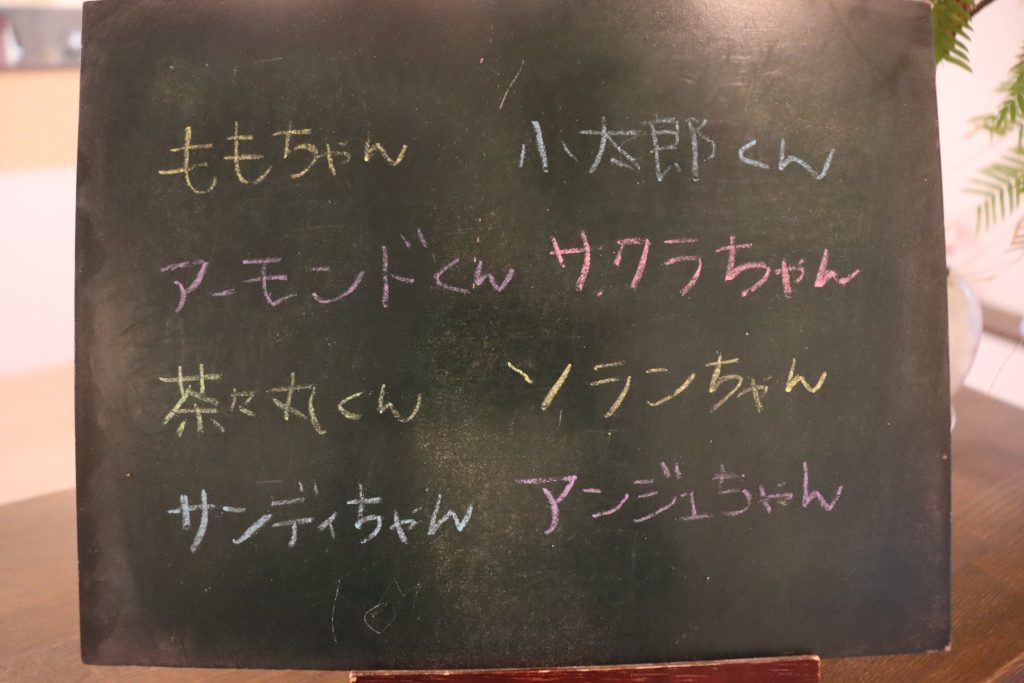 ももちゃん 小太郎くん
アーモンドくん サクラちゃん
茶々丸くん ソランちゃん
サンディちゃん アンジュちゃん